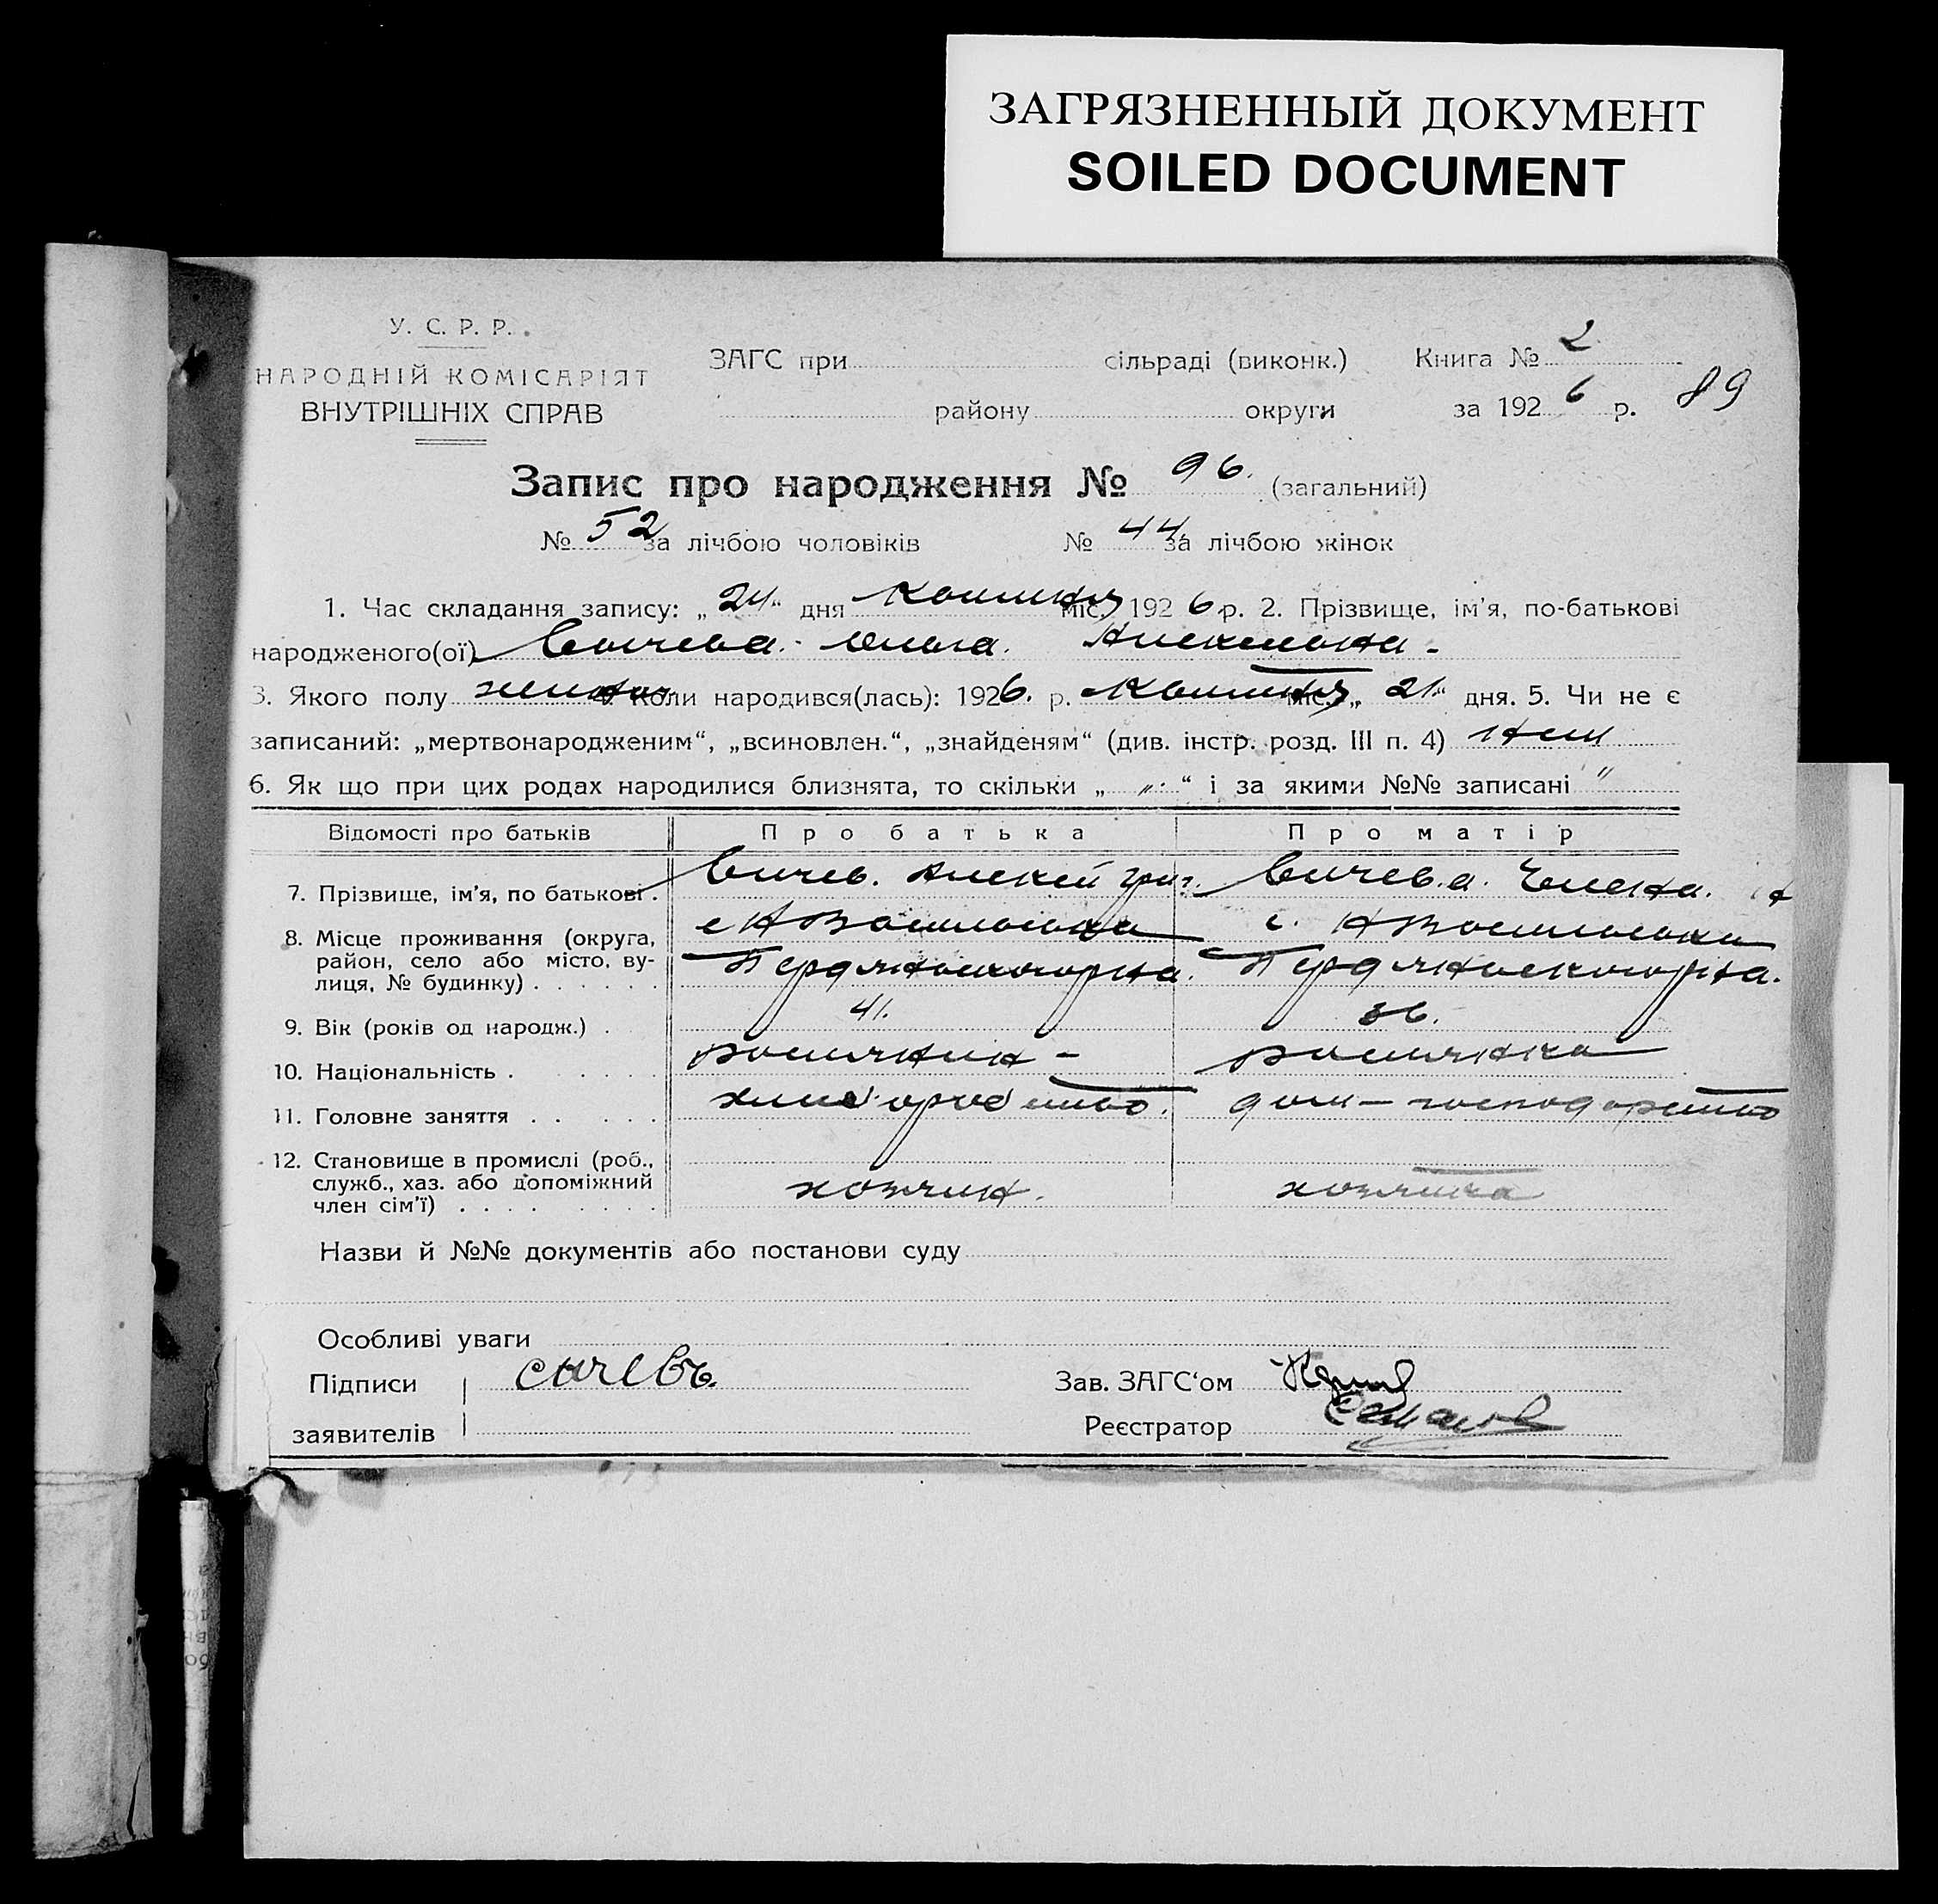 ЗАГРЯЗНЕННЫЙ ДОКУМЕНТ
SOILED DOCUMENT
У. С. Р. Р.
НАРОДНІЙ КОМІСАРІЯТ
ВНУТРІШНІХ СПРАВ
ЗАГС при сільраді (виконк.) Книга № 2
району округи за 1926 р. 89
Запис про народження № 96. (загальний)
№ 52 за лічбою чоловіків № 44 за лічбою жінок
1. Час складання запису: „24“ дня міс. 1926 р. 2. Прізвище, ім’я, по-батькові
народженого(ої) Сичева. Ольга. Алексеевна -
3. Якого полу Коли народився(лась): 1926. р. міс. „21“ дня. 5. Чи не є
записаний: „мертвонародженим“, „всиновлен.“, „знайденям“ (див. інстр. розд. III п. 4)
6. Як що при цих родах народилися близнята, то скільки „ „ “ і за якими №№ записані "
Відомості про батьків Про батька Про матір
7. Прізвище, ім’я, по батькові. Сичев. Алексей Григ. Сичев.а. Елена.
8. Місце проживання (округа,
район, село або місто, ву-
лиця, № будинку)
9. Вік (років од народж.) 41. 36.
10. Національність росиянин - росиянка
11. Головне заняття хлиборобство. дом - господарство
12. Становище в промислі (роб.,
служб., хаз. або допоміжний
член сім’ї) хозяин. хозяйка
Назви й №№ документів або постанови суду
Особливі уваги
Підписи сычевъ. Зав. ЗАГС‘ом
заявителів Реєстратор